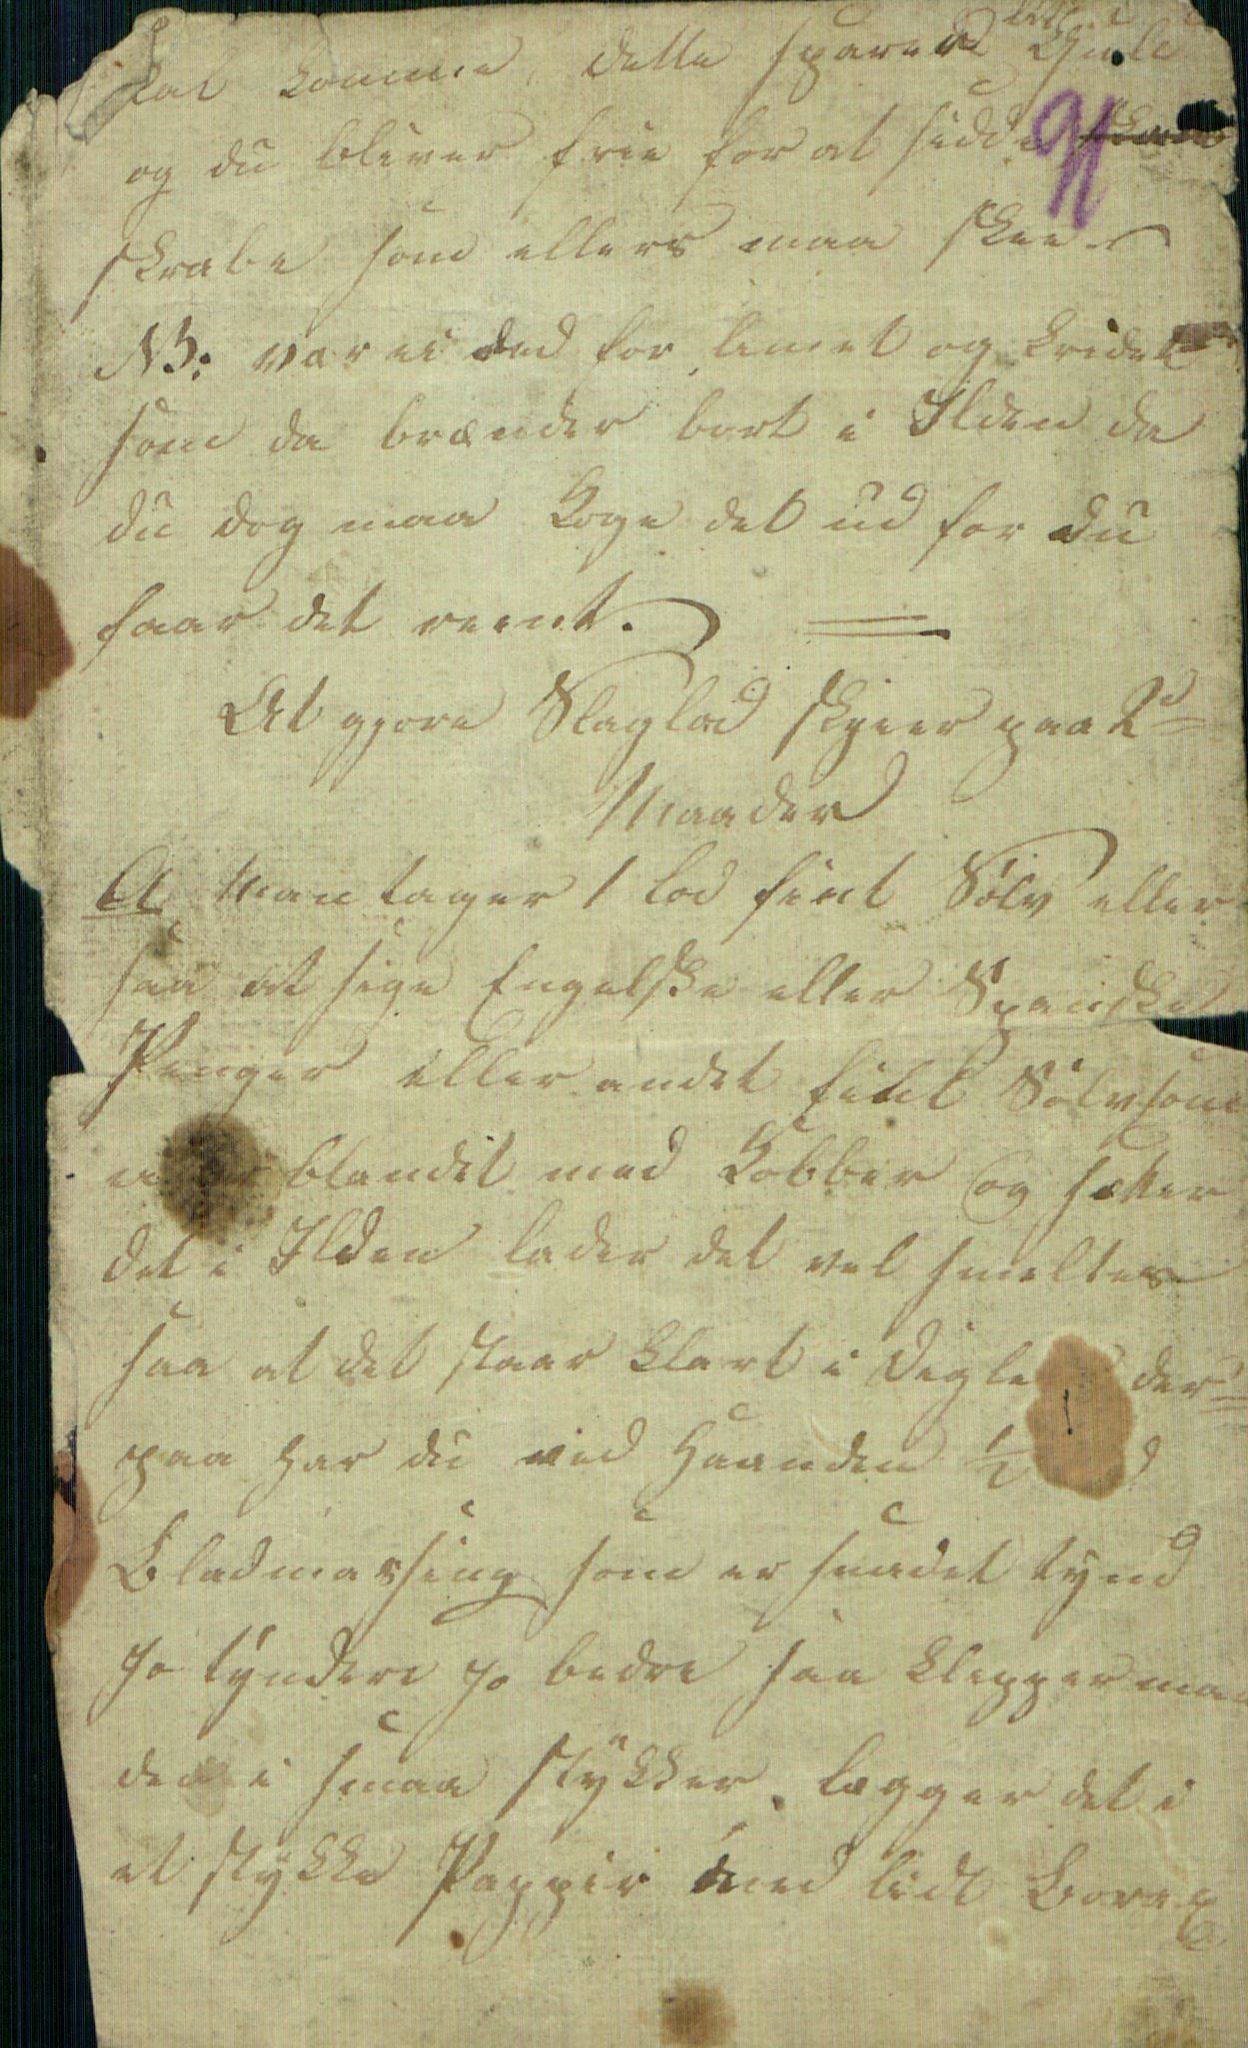 skal komme, dette sparer
og du bliver frie for at sidde
skrabe som ellers maa skee
NB: vær ei ræd for limet og kridet
som da brænder bort i Ilden da
du dog maa koge det ud for du
faar det reent.
At gjøre Slaglod skyeer paa 2de
Maader
A Man tager 1 lod fint Sølv eller
saa at sige Engelske eller Spanske
Penger eller andet fint Sølv som
ei er blandet med Kobber og sætter
det i Ilden lader det vel smeltes
saa at det staar klart i digle der=
paa har du ved Haanden ½
Bladmessing som er smedet tynd
jo tyndere jo bedre saa klepper man
den i smaa stykker. legger det i
et stykke Pappir med lidt Borax